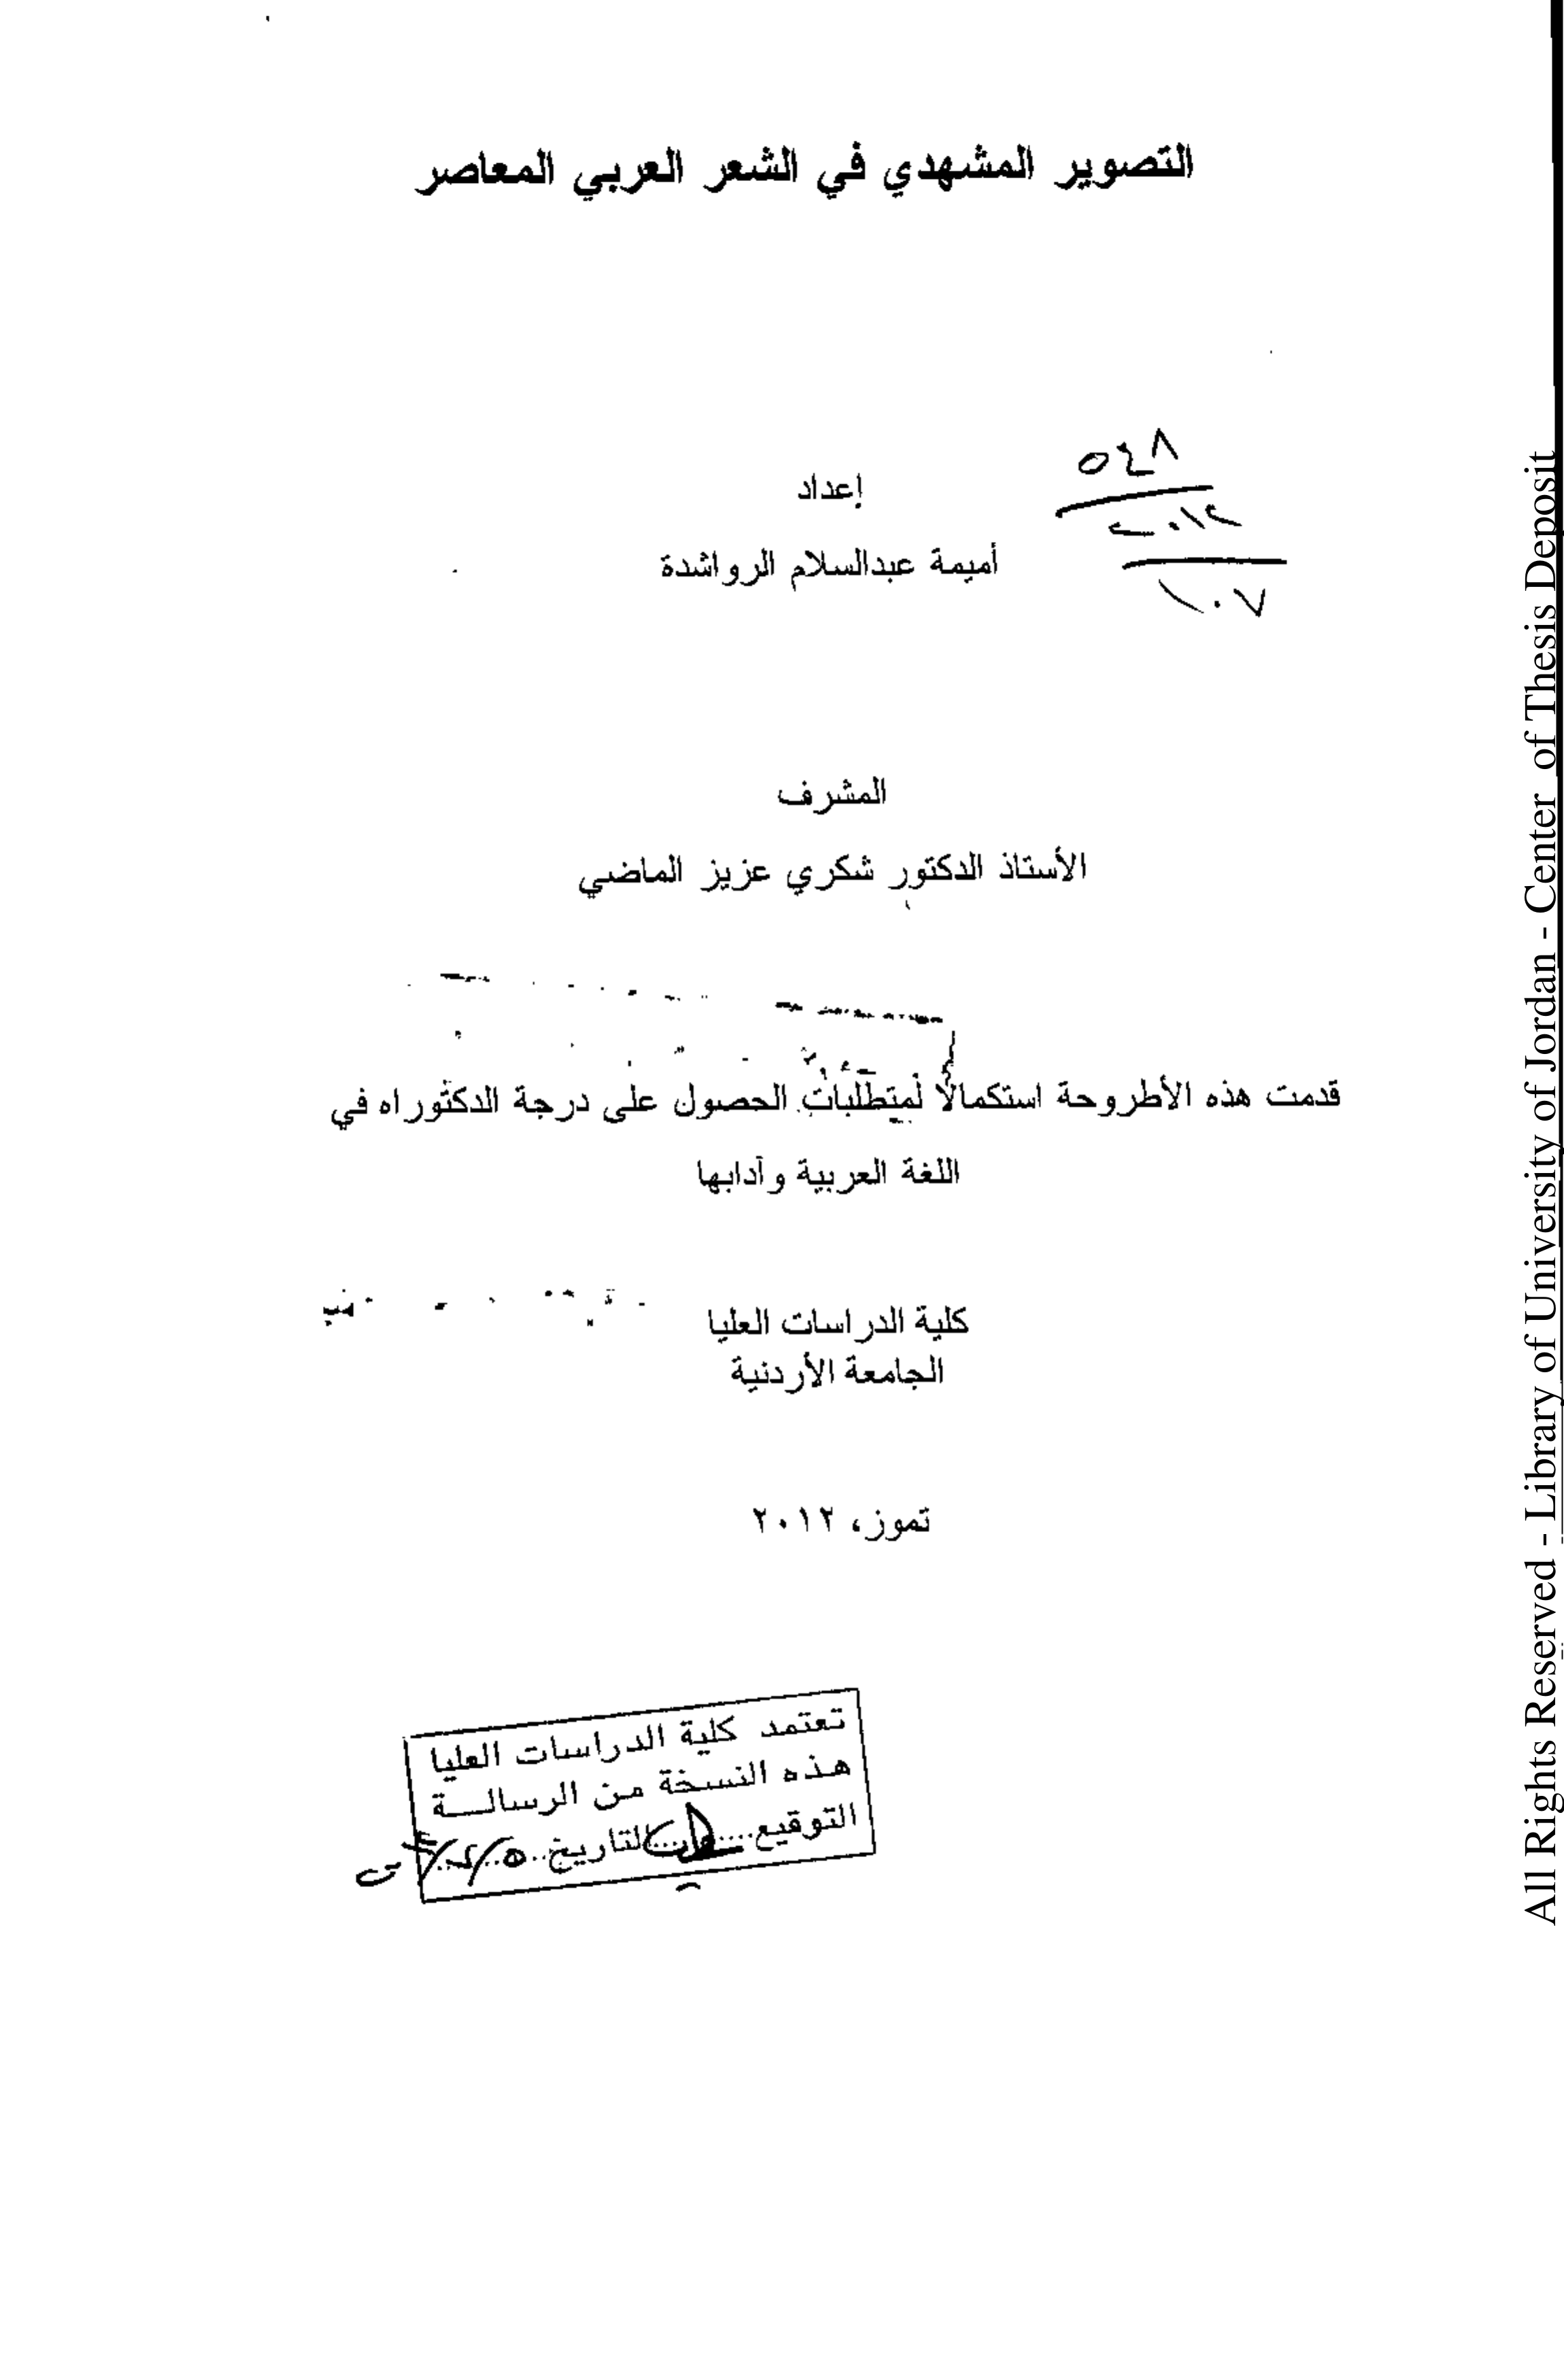 التصوير المشهدي في الشعر العربي المعاصر
٥٤٨
٢٠١٢
١٠٧
إعداد
أميمة عبدالسلام الرواشدة
المشرف
الأستاذ الدكتور شكري عزيز الماضي
قدمت هذه الأطروحة استكمالاً لمتطلبات الحصول على درجة الدكتوراه في
اللغة العربية وآدابها
كلية الدراسات العليا
الجامعة الأردنية
تموز، ٢٠١٢
تعتمد كلية الدراسات العليا
هذه النسخة من الرسالـــة
التوقيع.........التاريخ..
All Rights Reserved - Library of University of Jordan - Center of Thesis Deposit